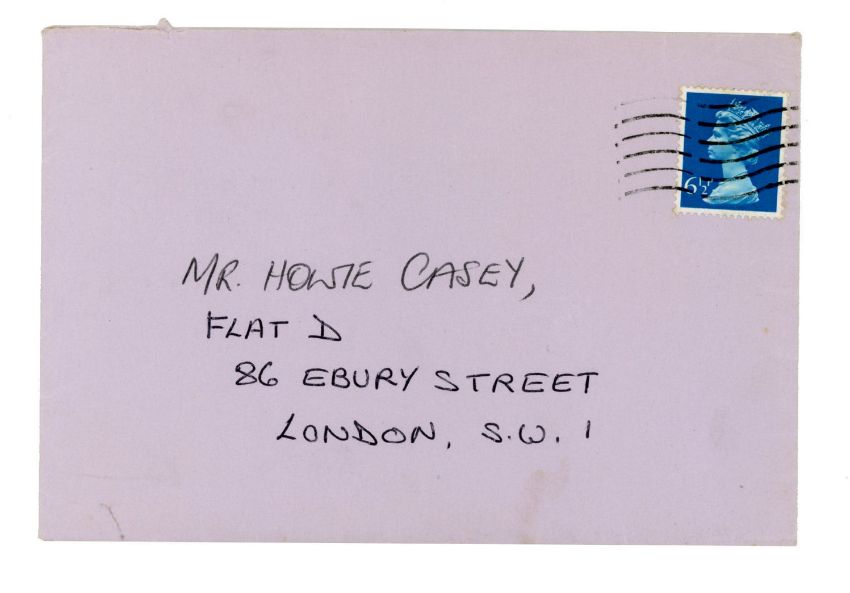 6½P
MR. HOWIE CASEY,
FLAT D
86 EBURY STREET
LONDON, S.W. 1